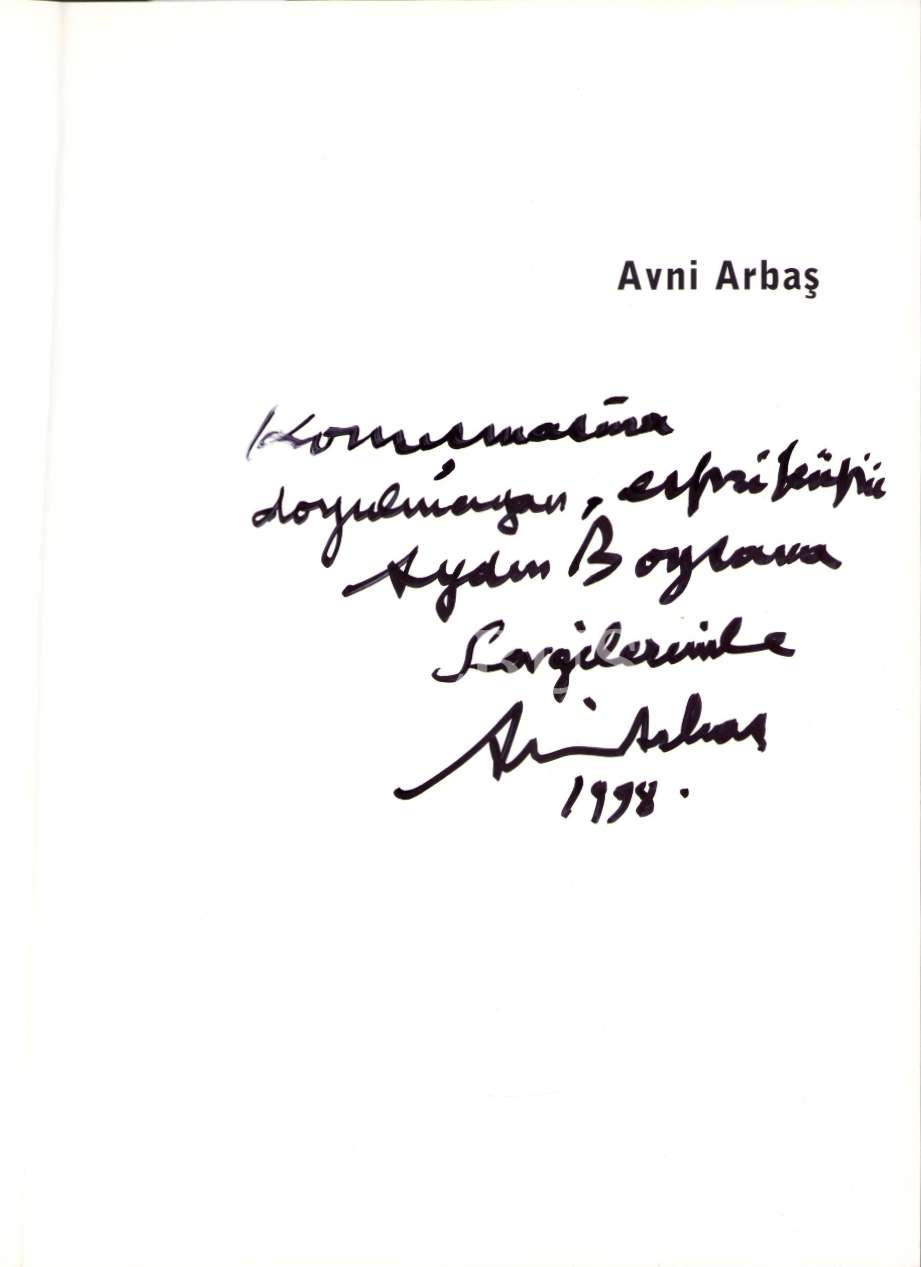 Avni Arbaş
Konuşmasına
doyulmayan, espri küpü
Aydın Boysana
Sevgilerimle
Avni Arbaş
1998.